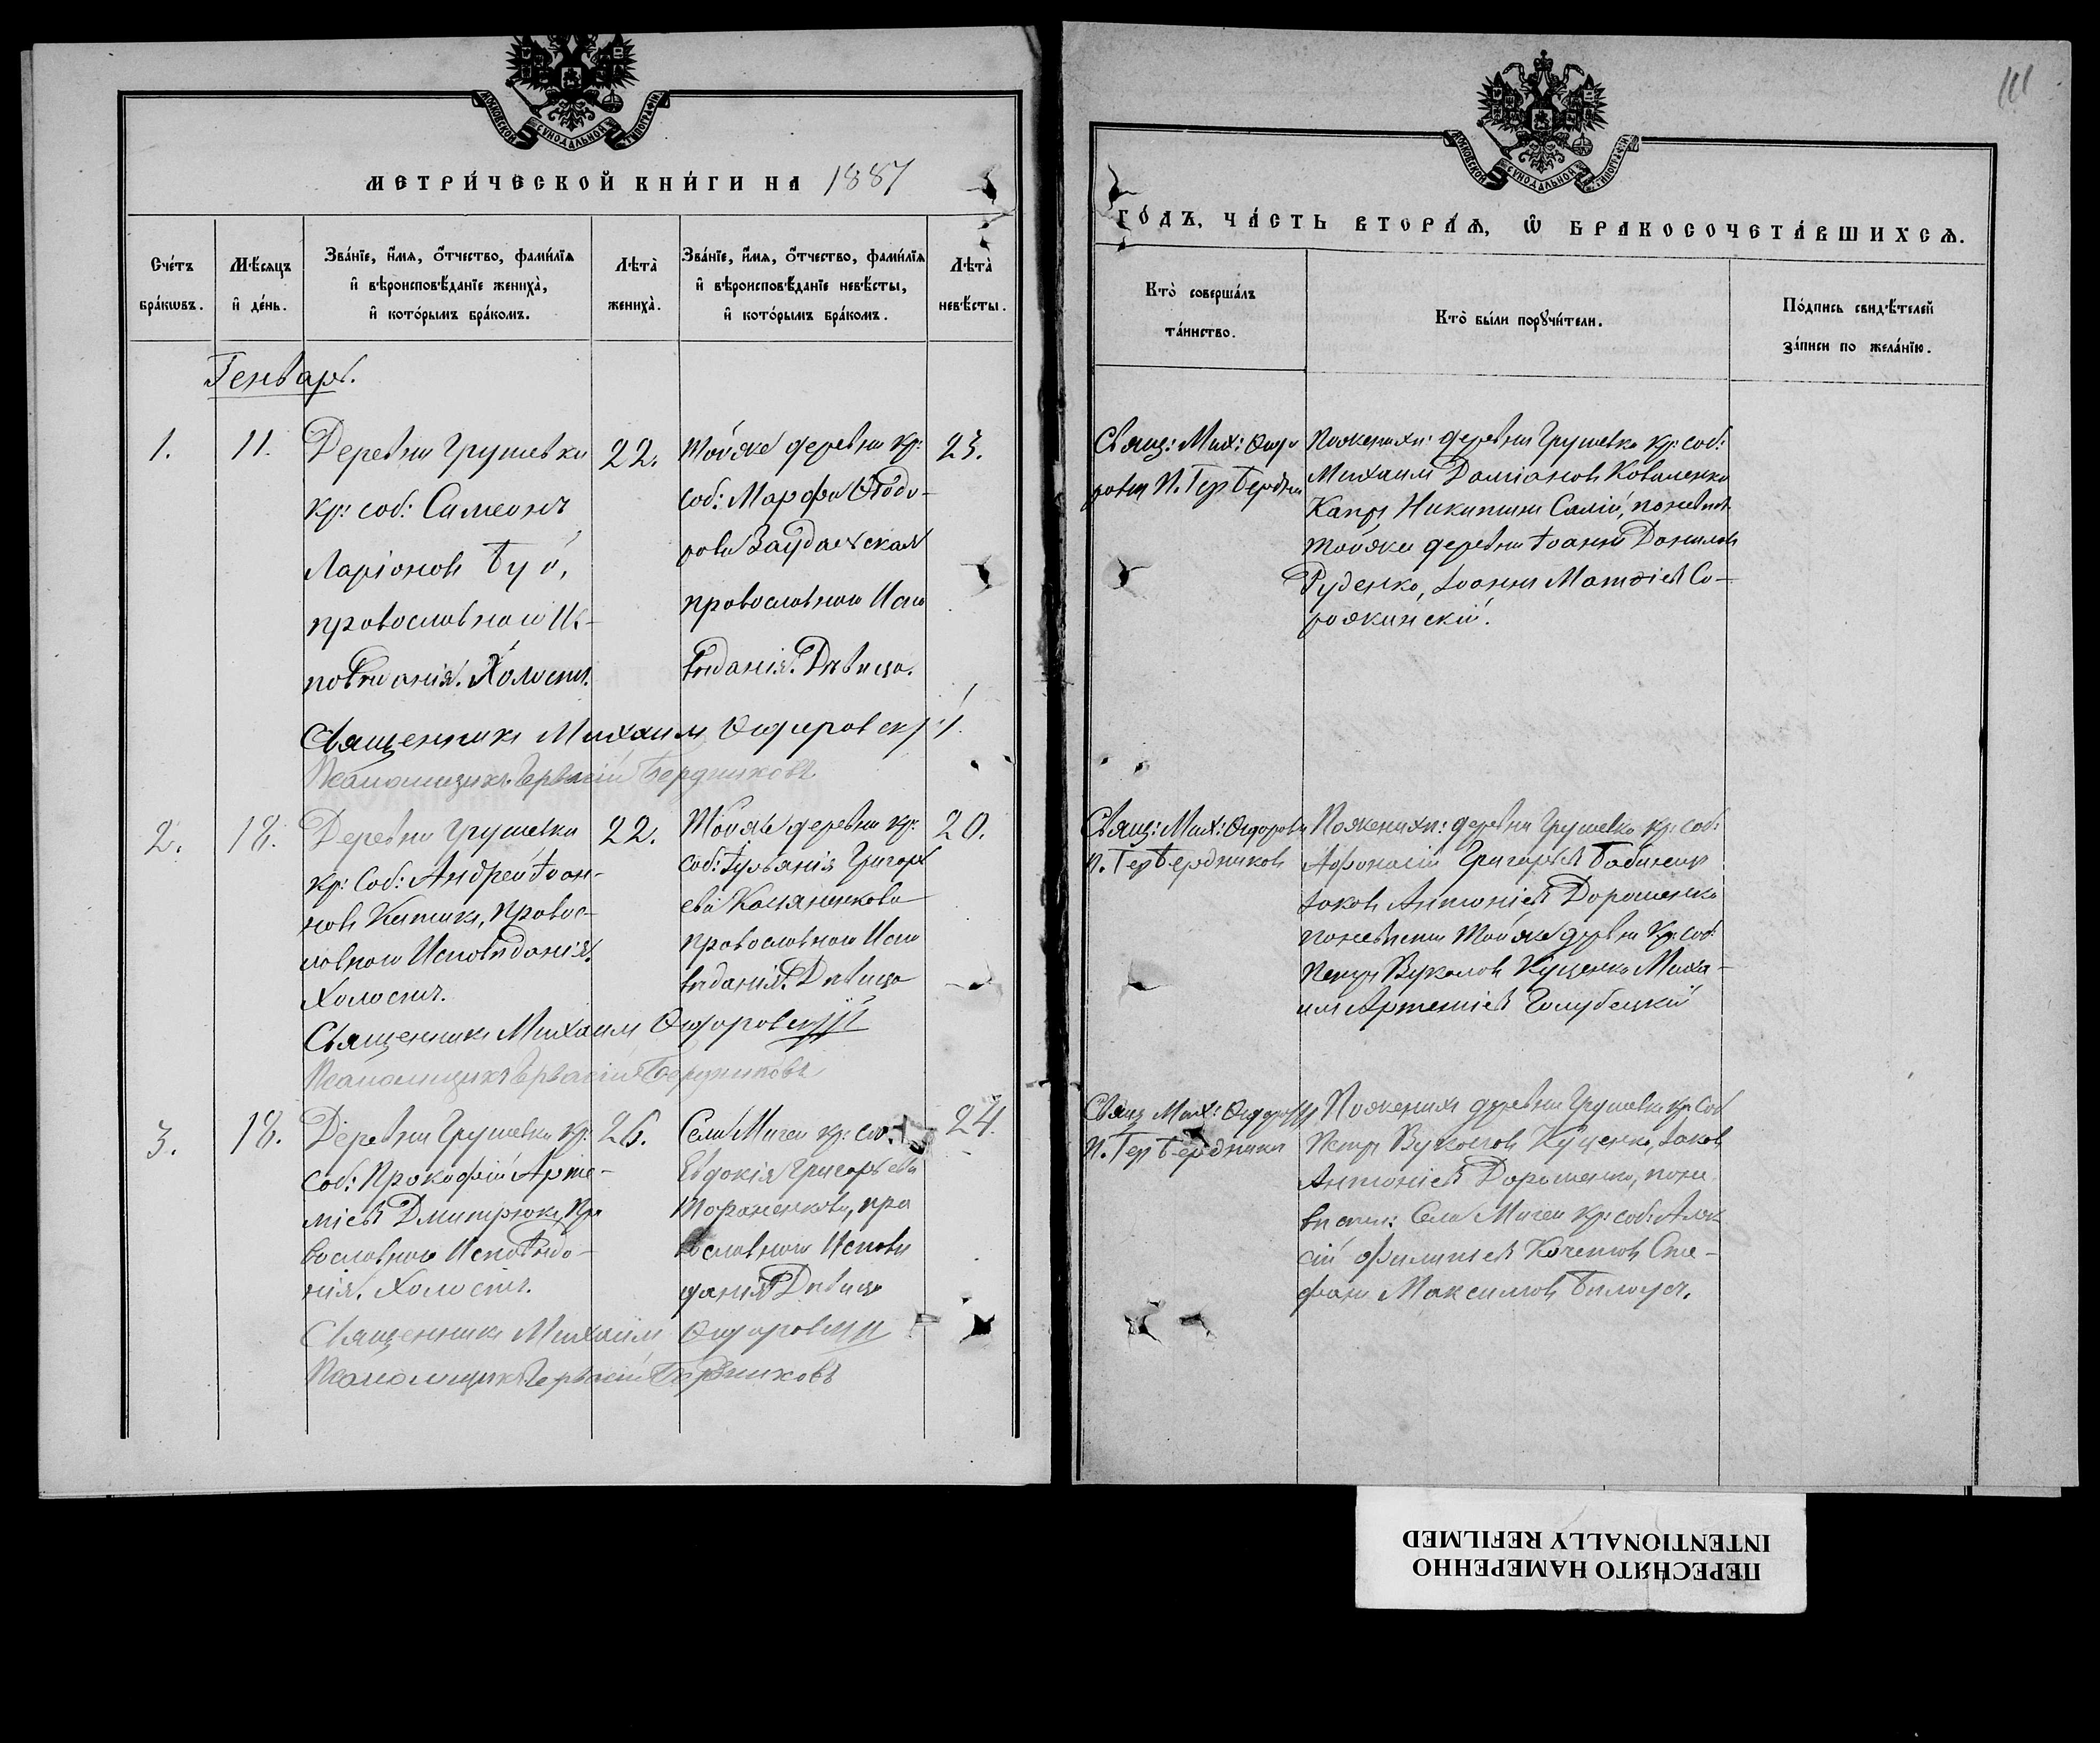 МОСКОВСКОЙ СѴНОДАЛЬНОЙ ТИПОГРАФІИ
МЕТРИ́ЧЕСКОЙ КНИ́ГИ НА 1887
Сче́тъ бра́кωвъ.
Мѣ́сяцъ и҆ де́нь.
Зва́нїе, и҆́мя, ѻ҆́тчество, фами́лїя и҆ вѣроисповѣ́данїе жениха̀, и҆ кото́рымъ бра́комъ.
Лѣта̀ жениха̀.
Зва́нїе, и҆́мя, ѻ҆́тчество, фами́лїя и҆ вѣроисповѣ́данїе невѣ́сты, и҆ кото́рымъ бра́комъ.
Лѣта̀ невѣ́сты.
Генварь.
1.
11.
Деревни Грушевки
кр: соб: Симеонъ
Ларіоновъ Буй,
православнаго Ис-
повѣданія. Холостъ.
22.
Тойже деревни кр:
соб: Марфа Ѳеодо-
рова
православнаго Испо
вѣданія. Дѣвица.
23.
Священникъ Михаилъ
Псаломщикъ Герваcій Бердниковъ
2.
18.
Деревни Грушевки
кр: соб: Андрей Іоан-
новъ Китикъ, Правос-
лавнаго Исповѣданія.
Холостъ.
22.
Тойже деревни кр:
соб: Іуліанія Григорь
ева
православнаго Испо
вѣданія. Дѣвица
20.
Священникъ Михаилъ
Псаломщикъ Герваcій Бердниковъ
3.
18.
Деревни Грушевки кр:
соб: Прокофій Арте-
міевъ Дмитрюкъ, Пра
вославнаго Исповѣда-
нія. Холостъ.
26.
Села Мигеи кр:
Евдокія Григорьева
пра
вославнаго Исповѣ
данія Дѣвица
24.
Священникъ Михаилъ
Псаломщикъ Герваcій Бердниковъ
111
МОСКОВСКОЙ СѴНОДАЛЬНОЙ ТИПОГРАФІИ
ГО́ДЪ, ЧА́СТЬ ВТОРА́Ѧ, Ѽ БРАКОСОЧЕТА́ВШИХСѦ.
Кто̀ соверша́лъ та́инство.
Кто̀ бы́ли порꙋчи́тели.
По́дпись свидѣ́телей за́писи по жела́нїю.
Свящ: Мих:
П. Гер Бердник
Поженихѣ: деревни Грушевки кр: соб:
Михаилъ Даміановъ Коваленко
Никитинъ Салій, поневѣстѣ
тойже деревни Іоаннъ Даниловъ
Руденко, Іоаннъ Матѳіевъ Со-
рокинскій.
Свящ: Мих:
П. Гер Бердниковъ
Поженихѣ: деревни Грушевки кр: соб:
Афонасій Григорьевъ
Іаковъ Антоніевъ Дорошенко
поневѣстѣ тойже деревни Кр: соб:
Петръ Вуколовъ Куценко Миха-
илъ Артеміевъ Голубецкій
Свящ Мих:
П. Гер Бердникъ
Поженихѣ деревни Грушевки кр Соб
Петръ Вуколовъ Куценко, Іаковъ
Антоніевъ Дорошенко, поне
вѣстѣ: Села Мигеи кр: соб: Алек
сій Филипіевъ Кочетовъ Сте-
фанъ Максимовъ Билоусъ.
ПЕРЕСНЯТО НАМЕРЕННО
INTENTIONALLY REFILMED